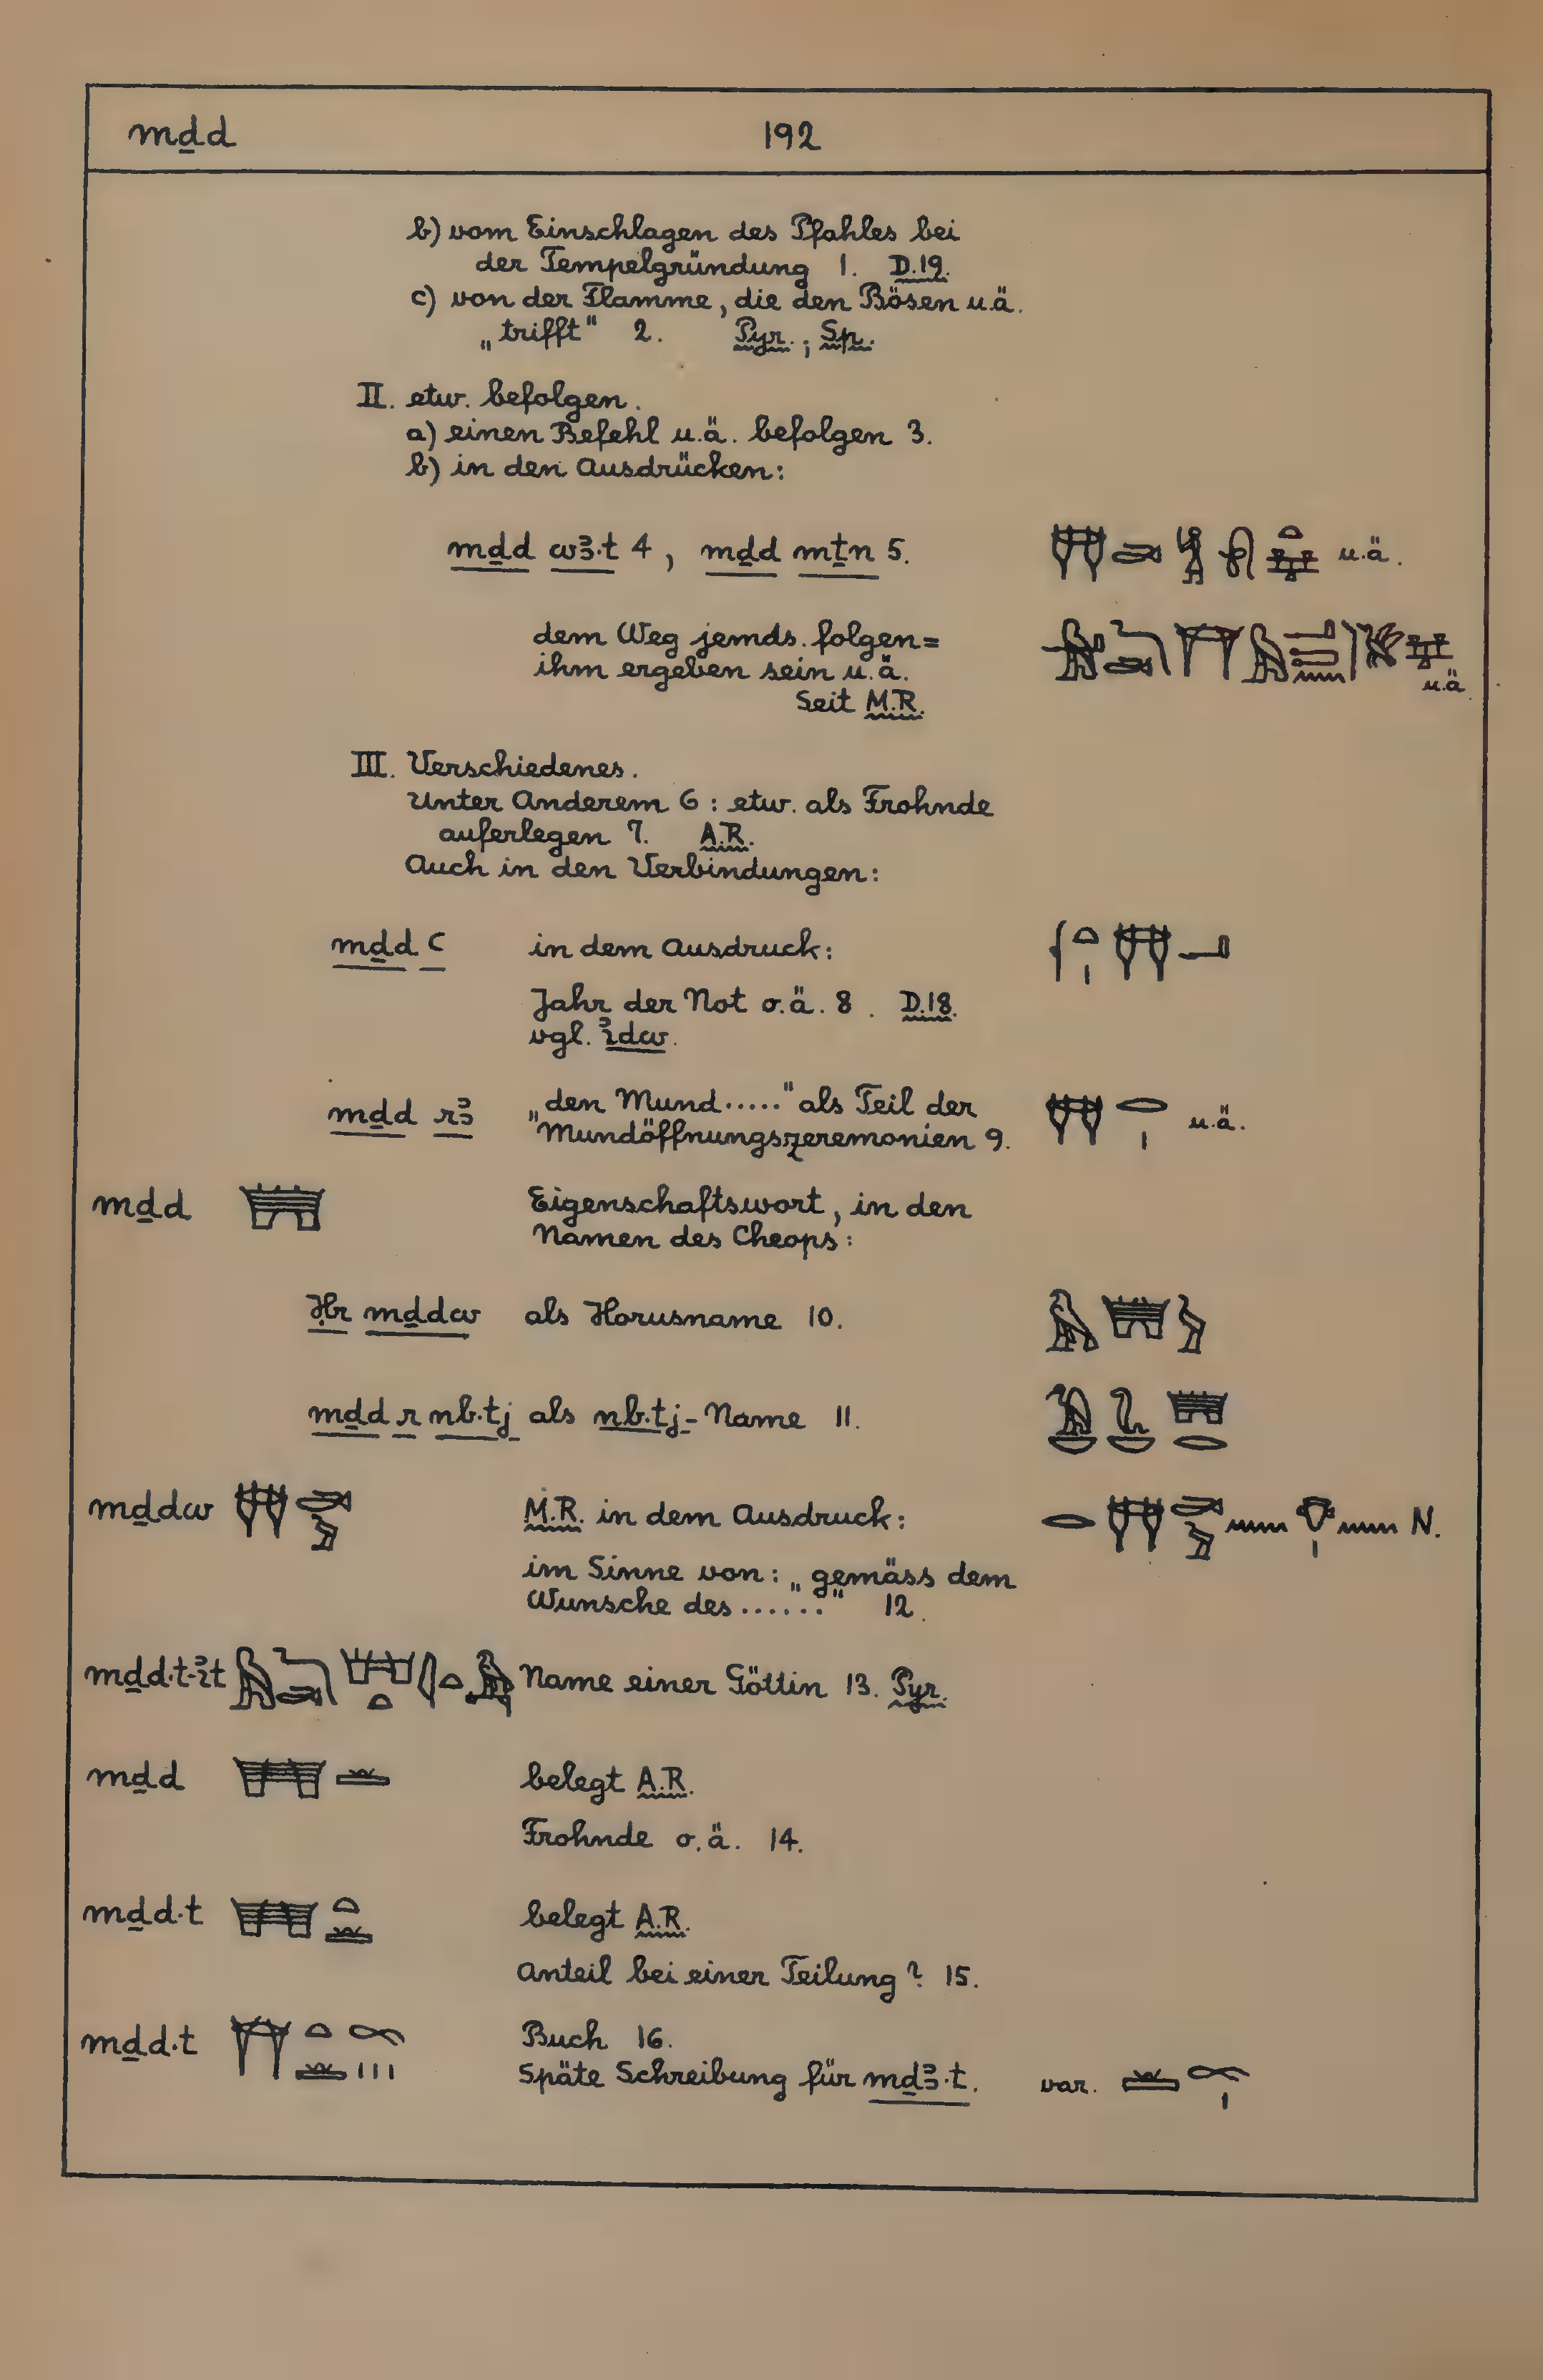 mḏd 192
b) vom Einschlagen des Pfahles bei
der Tempelgründung 1. D.19.
c) von der Flamme, die den Bösen u.ä.
„trifft" 2. Pyr.; Sp.
II. etw. befolgen.
a) einen Befehl u.ä. befolgen 3.
b) in den Ausdrücken:
mḏd wꜣ.t 4, mḏd mṯn 5. u.ä.
dem Weg jemds. folgen =
ihm ergeben sein u.ä. u.ä.
Seit M.R.
III. Verschiedenes.
Unter Anderem 6: etw. als Frohnde
auferlegen 7. A.R.
Auch in den Verbindungen:
mḏd ꜥ in dem Ausdruck:
Jahr der Not o.ä. 8. D.18.
vgl. ꜣidw.
mḏd rꜣ „den Mund....." als Teil der
Mundöffnungszeremonien 9. u.ä.
mḏd Eigenschaftswort, in den
Namen des Cheops:
Ḥr mḏdw als Horusname 10.
mḏd r nb.tj als nb.tj-Name 11.
mḏdw M.R. in dem Ausdruck: N.
im Sinne von: „gemäss dem
Wunsche des ......" 12.
mḏd.t-ꜣit Name einer Göttin 13. Pyr.
mḏd belegt A.R.
Frohnde o.ä. 14.
mḏd.t belegt A.R.
Anteil bei einer Teilung? 15.
mḏd.t Buch 16.
Späte Schreibung für mḏꜣ.t. var.